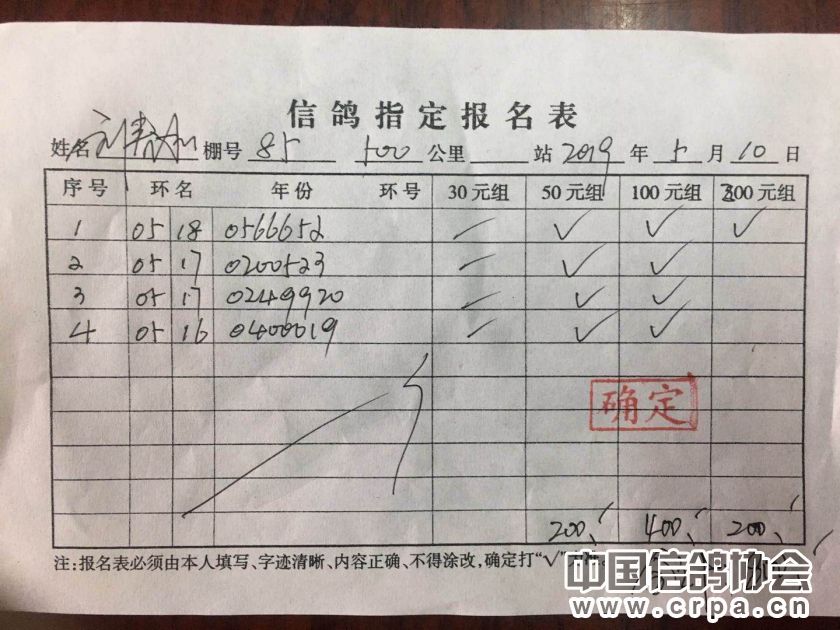 信鸽指定报名表
姓名 棚号 85 500 公里 站 2019 年 5 月 10 日
序号 环名 年份 环号 30元组 50元组 100元组 200元组
1 05 18 0566652 — ✓ ✓ ✓
2 05 17 0200523 — ✓ ✓
3 05 17 0249920 — ✓ ✓
4 05 16 0400019 — ✓ ✓
确定
200 400 200
注:报名表必须由本人填写、字迹清晰、内容正确、不得涂改,确定打“√”
中国信鸽协会
www.crpa.cn